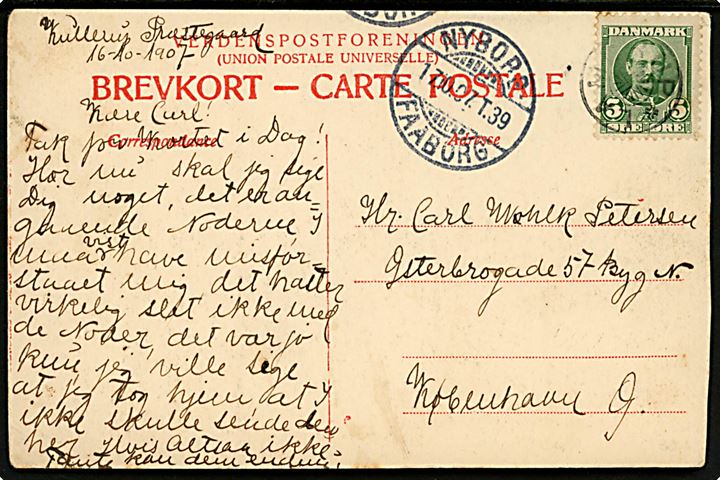 Kullerup Præstegaard
16-10-1907
VERDENSPOSTFORENINGEN
(UNION POSTALE UNIVERSELLE)
BREVKORT — CARTE POSTALE
Correspondance
Adresse
Kære Carl!
Tak for Kortet i Dag!
Hør nu skal jeg sige
Dig noget, det er an-
gaaende Noderne I
maa vist have misfor-
staaet mig det haster
virkelig slet ikke med
de Noder, det var jo
kun jeg ville sige
at jeg tog hjem at I
ikke skulle sende dem
her Hvis Altsaa ikke
Tante kan dem endnu,
Hr. Carl Mohlk Petersen
Østerbrogade 57 Byg N.
København Ø.
NYBORG
FAABORG
DANMARK
5 5
ØRE ØRE